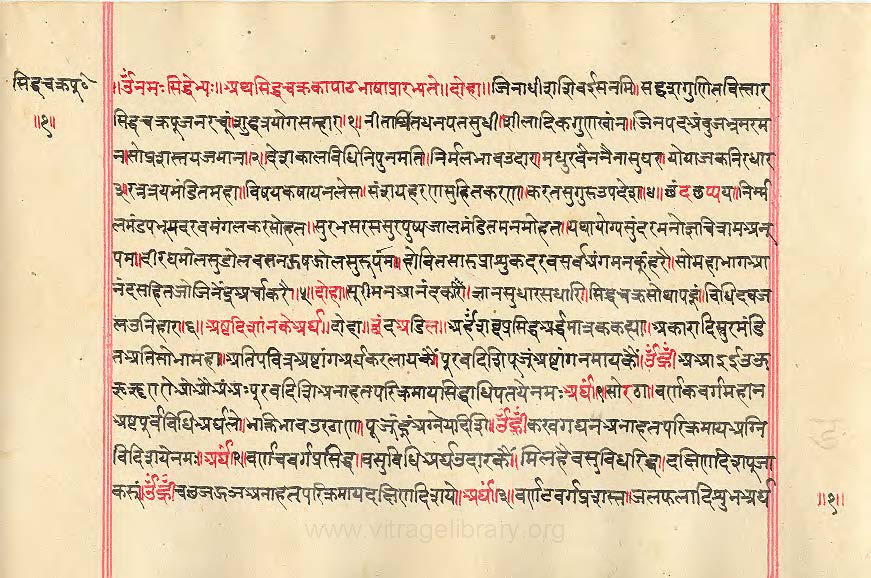 सिद्धचक्रपू॰
॥१॥
॥ॐनमःसिद्धेभ्यः॥अथसिद्धचक्रकापाठभाषाप्रारभ्यते॥दोहा॥जिनाधीशशिवईसनमि॥सहस्रगुणितविस्तार
सिद्धचक्रपूजनरचूं॥शुद्धत्रयोगसम्हार॥१॥नीताश्रितधनपतसुधी॥शीलादिकगुणखांन॥जिनपदअंबुजभ्रमरम
न॥सोप्रशस्तयजमान॥२॥देशकालविधिनिपुनमति॥निर्मलभावउदार॥मधुरवैननैनासुघर॥योयाजकनिरधार
३॥रत्नत्रयमंडितमहा॥विषयकषायनलेस॥संशयहरणसुहितकरण॥करतसुगुरुउपदेश॥४॥छंदछप्पय॥निर्म्म
लमंडपभूमदरवमंगलकरसोहत॥सुरभसरससुरपुष्पजालमंडितमनमोहत॥यथायोग्यसुंदरमनोज्ञचित्रामअनू
पमा॥दीरघमोलसुडोलवसनऊषजोलसुरूपम॥होवितसारप्राशुकदरवसर्वअंगमनकूंहरै॥सोमहाभागआ
नंदसहितजोजिनेंद्रअर्चाकरै॥५॥दोहा॥सूरीमनआनंदकारी॥ज्ञानसुधारसधारि॥सिद्धचक्रसोथापहूं॥विधिदवज
लउनिहार॥६॥अष्टदिशांनकेअर्घ॥दोहा॥छंदअडिल॥अर्हंशब्दप्रसिद्धअर्द्धमात्रककह्या॥अकारादिस्वरमंडि
तअतिसोभामहा॥अतिपवित्रअष्टांगअर्घकरलायकैं॥पूरवदिशिपूजूंअष्टांगनमायकैं॥ॐह्रीं॥अआइईउऊ
ऋॠएऐओऔअंअःपूरवदिशिअनाहतपरिक्रमायसिद्धाधिपतयेनमःअर्घं॥१॥सोरठा॥वर्णकवर्गमहान
अष्टपूर्वविधिअर्घले॥भक्तिभावउरठाण॥पूजूंहूंअग्नेयदिशि॥ॐह्रीं॥कखगघनअनाहतपरिक्रमायअग्नि
विदिशयेनमः॥अर्घं॥२॥वर्णचवर्गप्रसिद्ध॥वसुविधिअर्घउदारकैं॥मिलहैवसुविधरिद्ध॥दक्षिणदिशपूजा
करूं॥ॐह्रीं॥चछजझञअनाहतपरिक्रमायदक्षिणदिशये॥अर्घं॥३॥वर्णटवर्गप्रशस्त॥जलफलादिशुभअर्घ
॥१॥
www.vitragelibrary.org